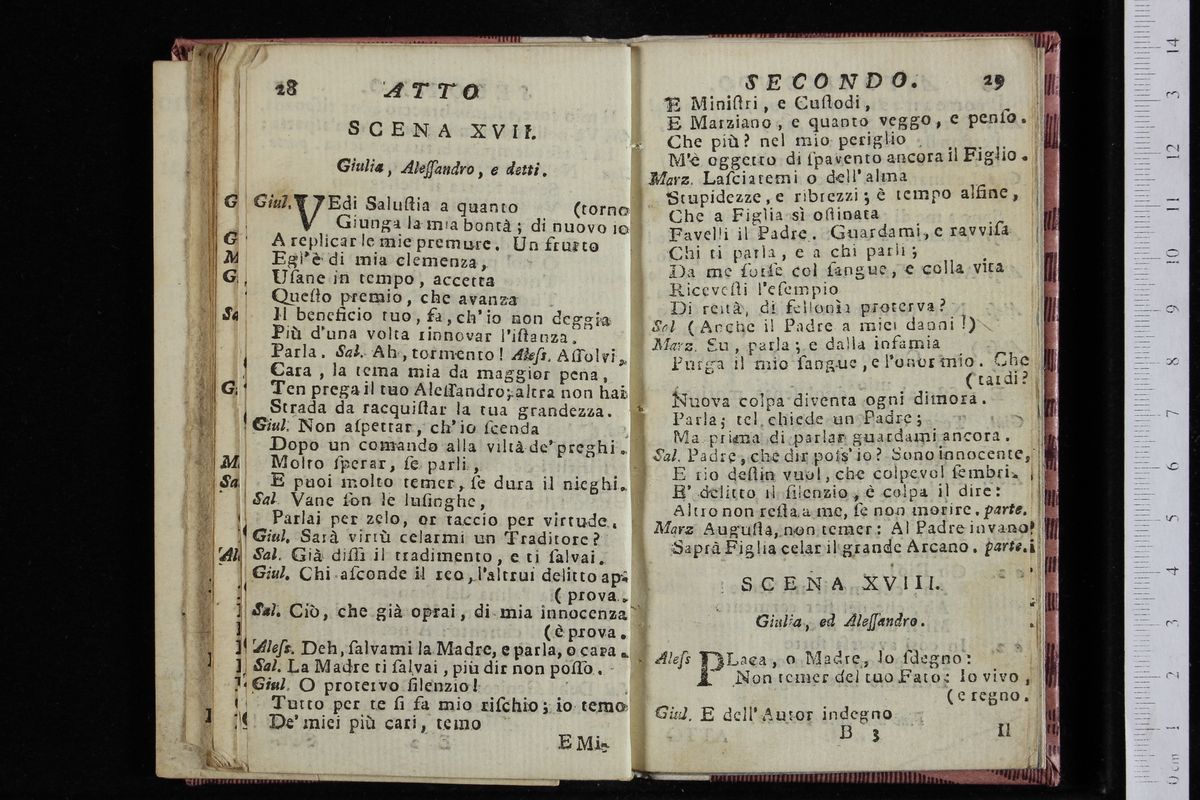 28 ATTO
SCENA XVII.
Giulia, Aleſſandro, e detti.
Giul. VEdi Saluſtia a quanto (torno
Giunga la mia bontà; di nuovo io
A replicar le mie premure. Un frutto
Egl'è di mia clemenza,
Uſane in tempo, accetta
Queſto premio, che avanza
Il beneficio tuo, fa, ch'io non deggia
Più d'una volta rinnovar l'iſtanza.
Parla. Sal. Ah, tormento! Aleſs. Aſſolvi,
Cara, la tema mia da maggior pena,
Ten prega il tuo Aleſſandro; altra non hai
Strada da racquiſtar la tua grandezza.
Giul. Non aſpettar, ch'io ſcenda
Dopo un comando alla viltà de' preghi.
Molto ſperar, ſe parli,
E puoi molto temer, ſe dura il nieghi.
Sal. Vane ſon le luſinghe,
Parlai per zelo, or taccio per virtude.
Giul. Sarà virtù celarmi un Traditore?
Sal. Già diſſi il tradimento, e ti ſalvai.
Giul. Chi aſconde il reo, l'altrui delitto ap-
(prova.
Sal. Ciò, che già oprai, di mia innocenza
(è prova.
Aleſs. Deh, ſalvami la Madre, e parla, o cara.
Sal. La Madre ti ſalvai, più dir non poſſo.
Giul. O protervo ſilenzio!
Tutto per te ſi fa mio riſchio; io temo
De' miei più cari, temo
E Mi-
SECONDO. 29
E Miniſtri, e Cuſtodi,
E Marziano, e quanto veggo, e penſo.
Che più? nel mio periglio
M'è oggetto di ſpavento ancora il Figlio.
Marz. Laſciatemi o dell'alma
Stupidezze, e ribrezzi; è tempo alfine,
Che a Figlia sì oſtinata
Favelli il Padre. Guardami, e ravviſa
Chi ti parla, e a chi parli;
Da me forſe col ſangue, e colla vita
Riceveſti l'eſempio
Di reità, di fellonìa proterva?
Sal (Anche il Padre a miei danni!)
Marz. Su, parla; e dalla infamia
Purga il mio ſangue, e l'onor mio. Che
(tardi?
Nuova colpa diventa ogni dimora.
Parla; tel chiede un Padre;
Ma prima di parlar guardami ancora.
Sal. Padre, che dir poſs'io? Sono innocente,
E rio deſtin vuol, che colpevol ſembri.
E' delitto il ſilenzio, è colpa il dire:
Altro non reſta a me, ſe non morire. parte.
Marz Auguſta, non temer: Al Padre invano
Saprà Figlia celar il grande Arcano. parte.
SCENA XVIII.
Giulia, ed Aleſſandro.
Aleſs PLaca, o Madre, lo ſdegno:
Non temer del tuo Fato: Io vivo,
(e regno.
Giul. E dell'Autor indegno
B 3 Il